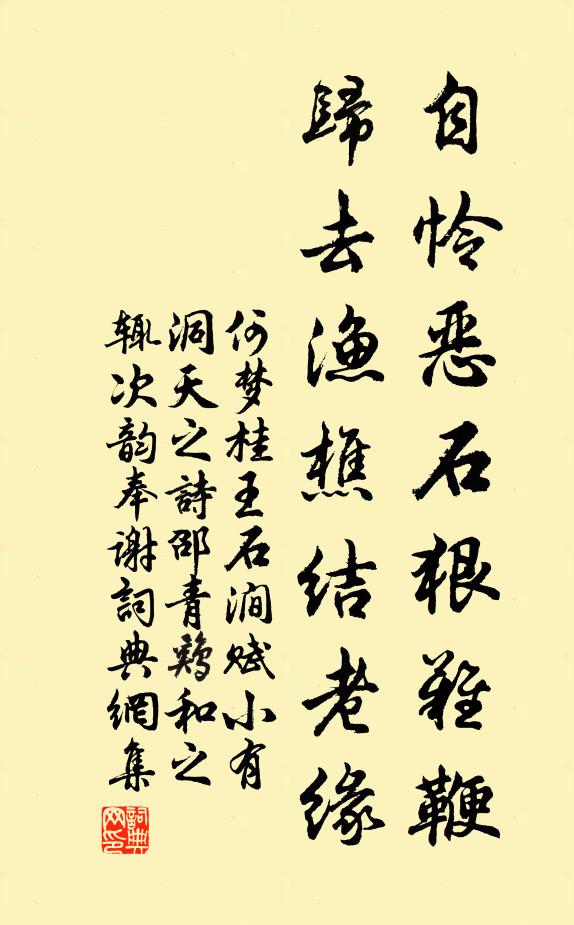 自怜恶石狠难鞭
歸去渔樵结老缘
何梦桂王石涧赋小有
洞天之詩邵青鷄和之
辄次韵奉谢詞典網集
詞典
网印